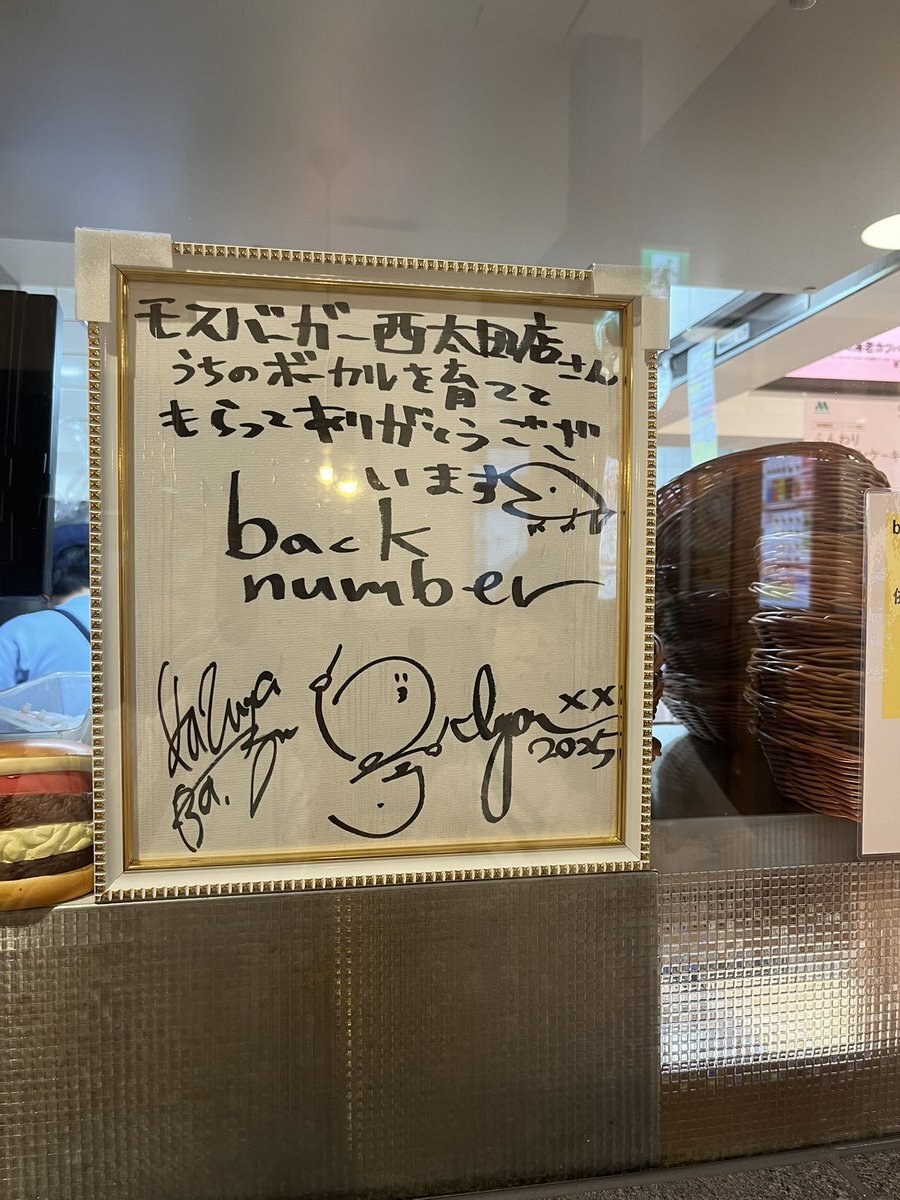 モスバーガー西太田店さん
うちのボーカルを育てて
もらってありがとうござ
います
back
number
Kazuya
xx
2025
ふんわり